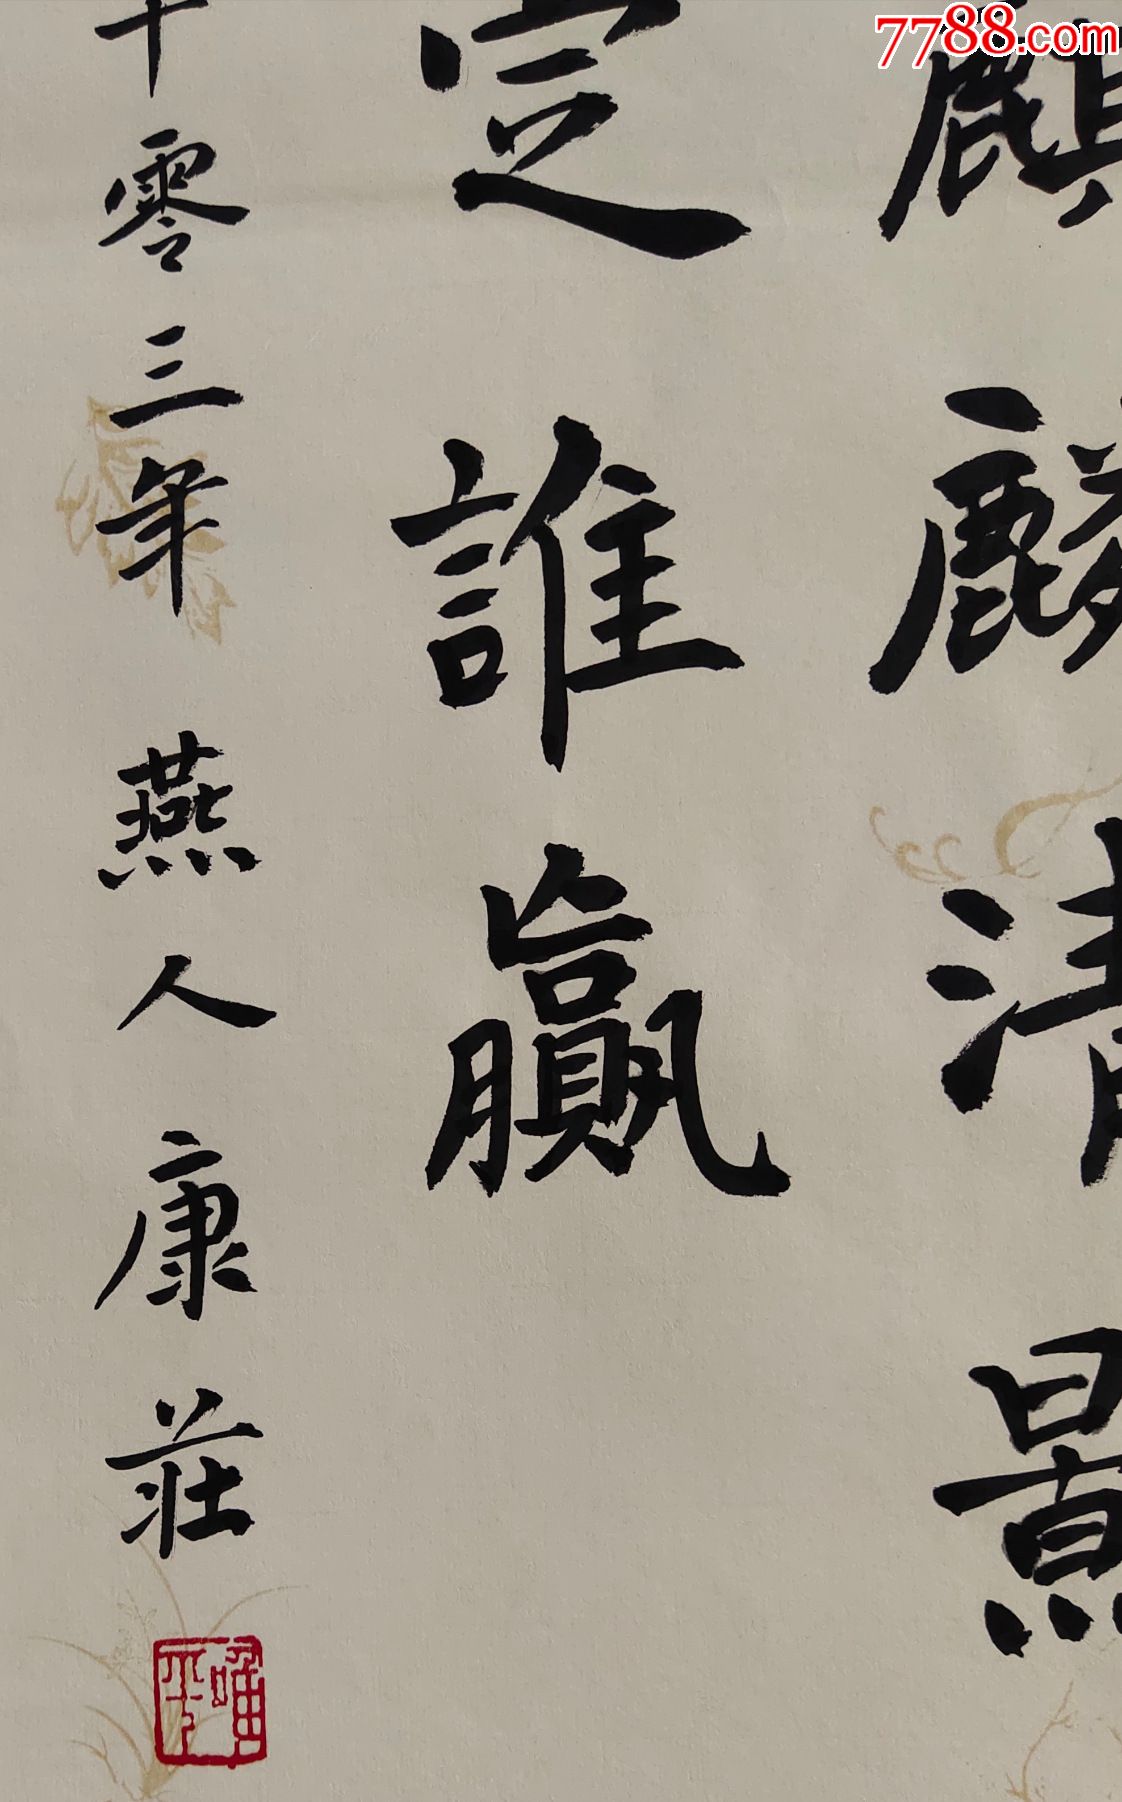 7788.com
麒麟清景
定誰贏
十零三年 燕人康莊